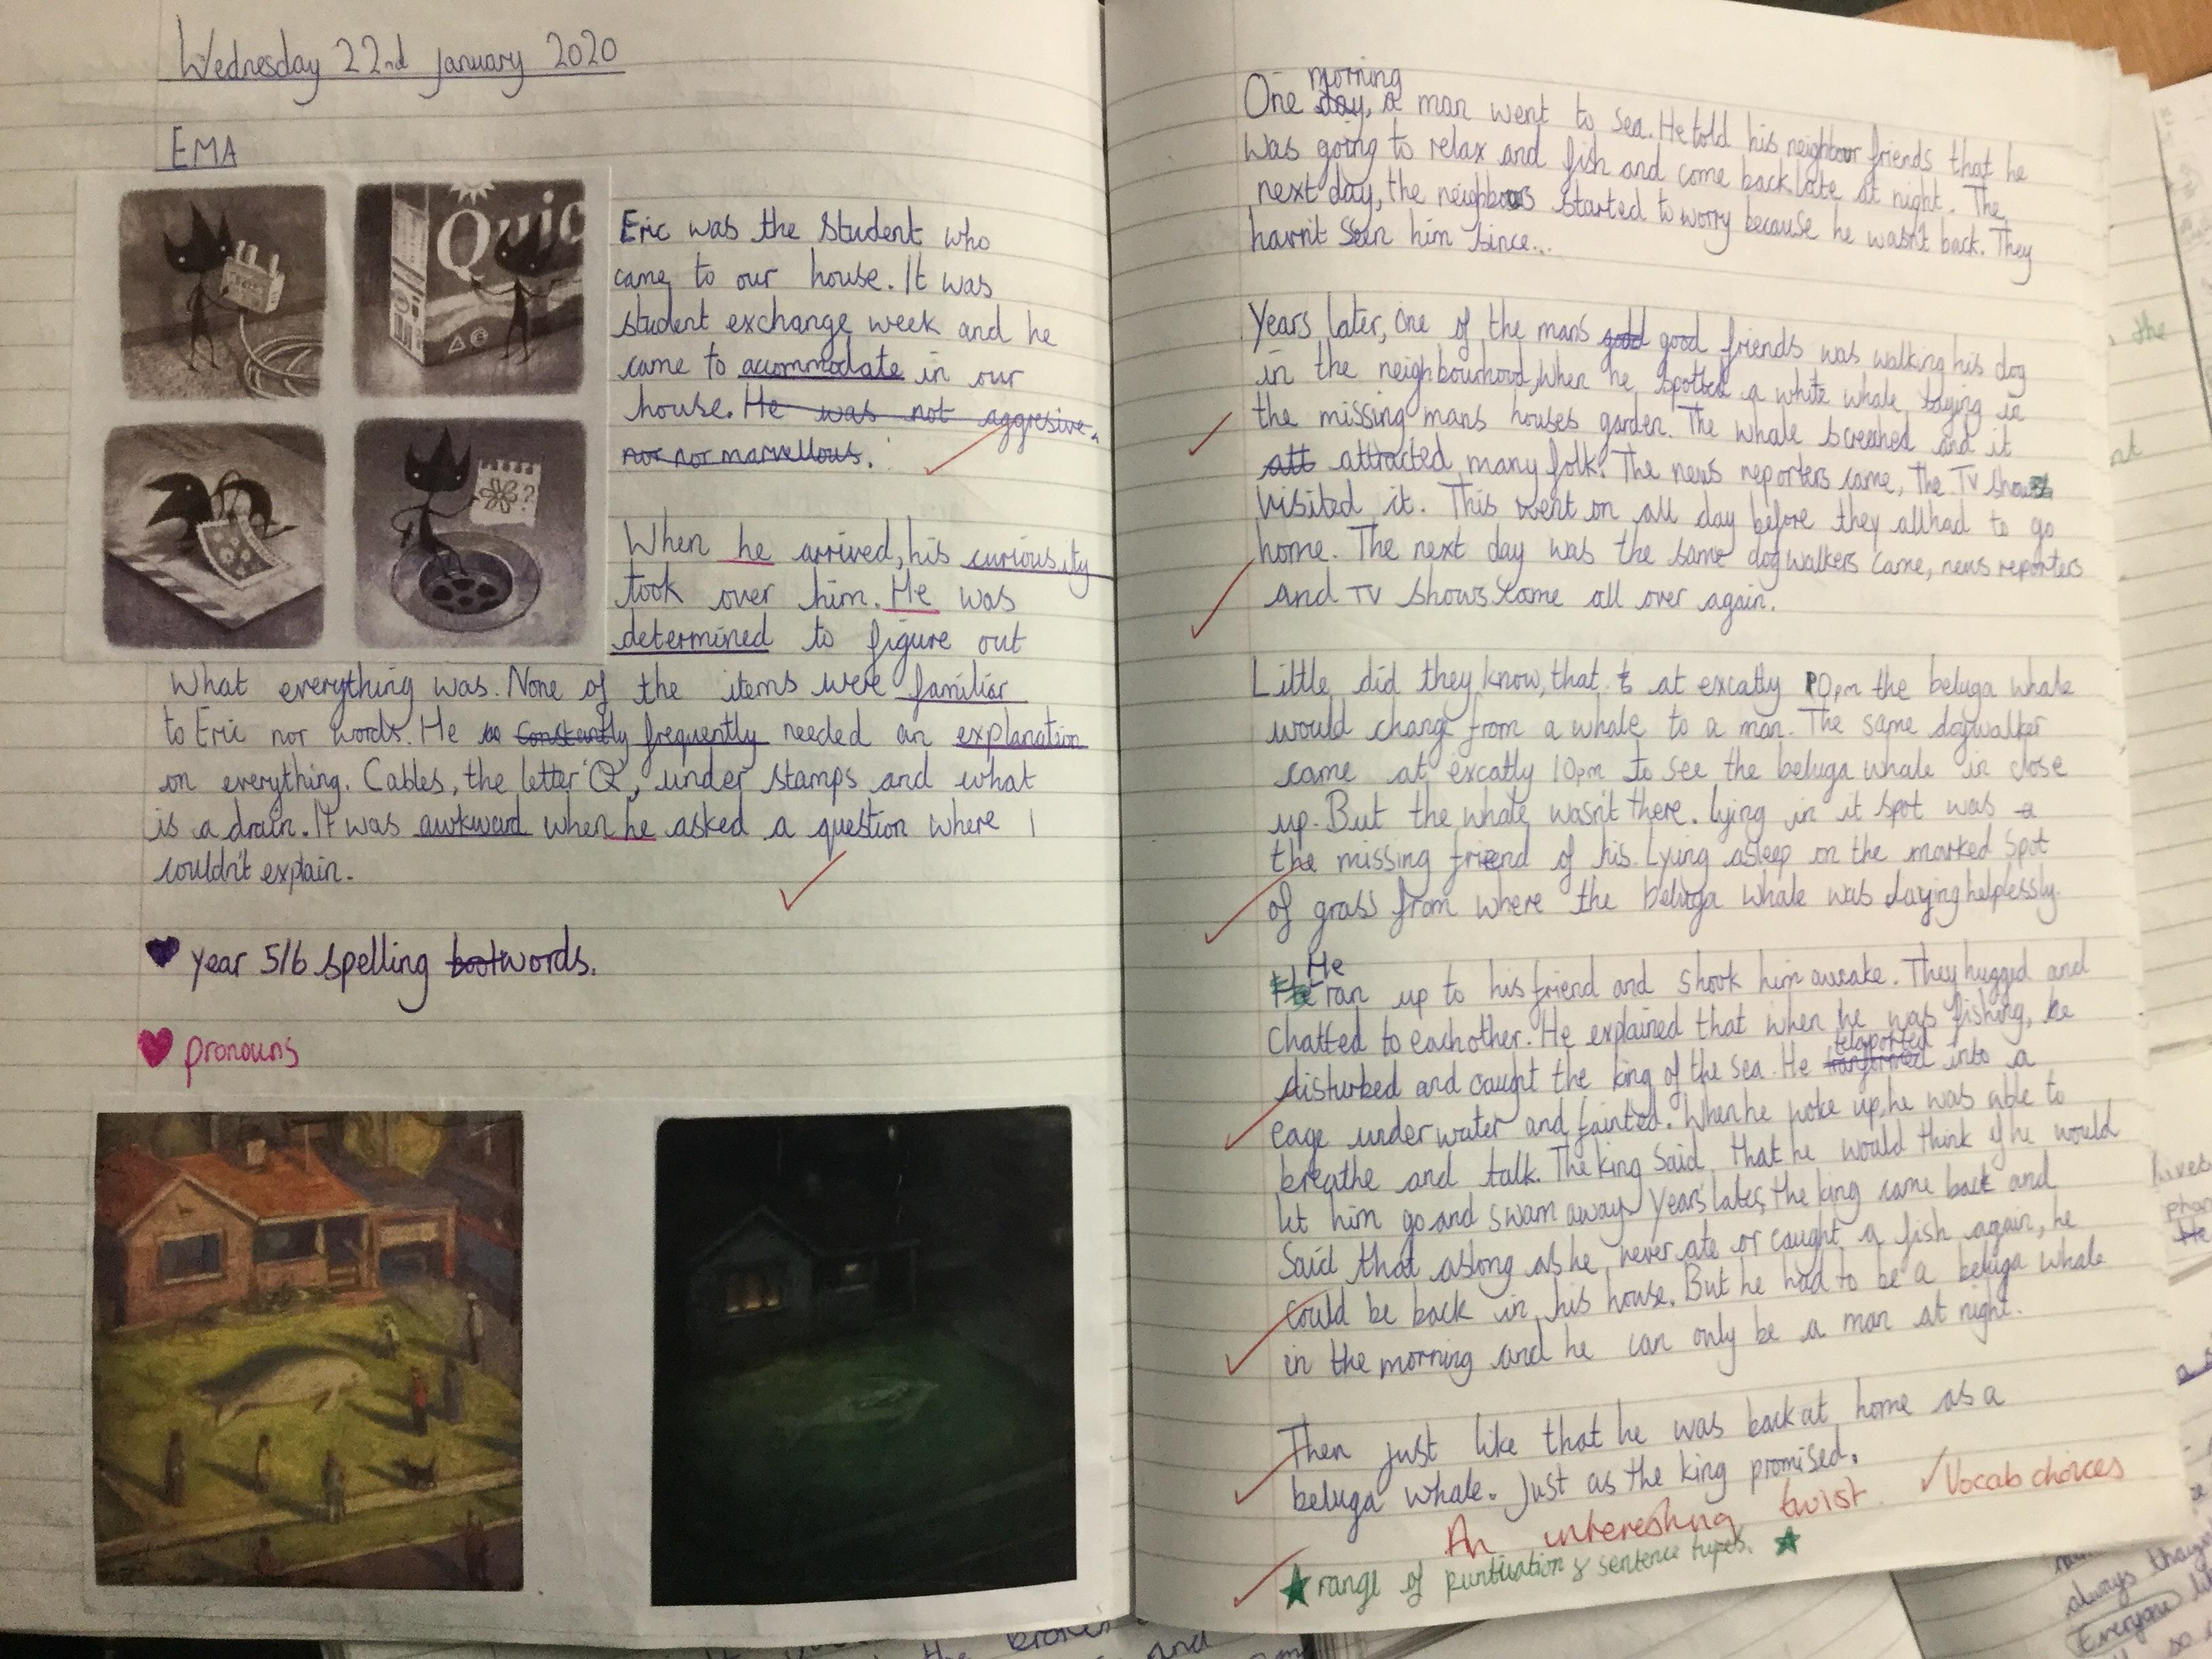 Wednesday 22nd January 2020
EMA
Quic
?
Eric was the student who
came to our house. It was
student exchange week and he
came to accommodate in our
house. He was not aggresive.
nor nor marvellous.
When he arrived, his curiousity
took over him. He was
determined to figure out
what everything was. None of the items were familiar
to Eric nor words. He constantly frequently needed an explanation
on everything. Cables, the letter 'Q', under stamps and what
is a drain. It was awkward when he asked a question where I
couldn't explain.
year 5/6 spelling words.
pronouns
One day, morning a man went to sea. He told his neighbour friends that he
was going to relax and fish and come back late at night. The
next day, the neighbours started to worry because he wasn't back. They
havn't seen him since...
Years later, one of the mans good friends was walking his dog
in the neighbourhood, when he spotted a white whale laying in
the missing mans houses garden. The whale screahed and it
att attracted many folk. The news reporters came, the TV shows
visited it. This went on all day before they all had to go
home. The next day was the same dog walkers came, news reporters
and TV shows come all over again.
Little did they know, that t at excatly 10pm the beluga whale
would change from a whale to a man. The same dogwalker
came at excatly 10pm to see the beluga whale in close
up. But the whale wasn't there. lying in it spot was a
the missing friend of his. Lying asleep on the marked spot
of grass from where the beluga whale was laying helplessly.
He ran up to his friend and shook him awake. They hugged and
chatted to eachother. He explained that when he was fishing, he
disturbed and caught the king of the sea. He teleported into a
cage underwater and fainted. When he woke up, he was able to
breathe and talk. The king said that he would think if he would
let him go and swam away. Years later, the king came back and
said that aslong as he never ate or caught a fish again, he
could be back in his house. But he had to be a beluga whale
in the morning and he can only be a man at night.
Then just like that he was back at home as a
beluga whale. Just as the king promised.
An interesting twist. Vocab choices
range of puntuation & sentence types.
the
always
Everyone
the broken
and